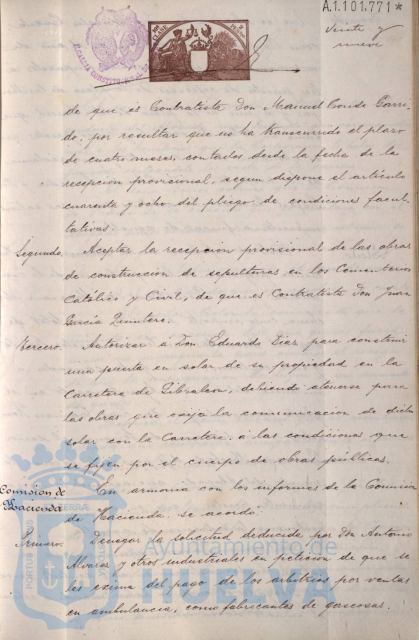 A.1.101.771*
Veinte y
nueve
de que es Contratista Don Manuel Conde Garri-
do; por resultar que no ha transcurrido el plazo
de cuatro meses, contados desde la fecha de la
recepcion provisional, segun dispone el articulo
cuarenta y ocho del pliego de condiciones facul-
tativas.
Segundo. Aceptar la recepcion provisional de las obras
de construccion de sepulturas en los Cementerios
Católico y Civil, de que es Contratista Don Juan
García Quintero.
Tercero. Autorizar á Don Eduardo Diaz para construir
una puerta en solar de su propiedad en la
Carretera de Gibraleon, debiendo atenerse para
las obras que exija la comunicacion de dicho
solar con la Carretera, á las condiciones que
se fijen por el cuerpo de obras públicas.
Comision de
Hacienda
En armonia con los informes de la Comision
de Hacienda se acordó:
Primero. Denegar la solicitud deducida por Don Antonio
Alvarez y otros industriales en peticion de que se
les exima del pago de los arbitrios por ventas
en ambulancia, como fabricantes de gaseosas.
Ayuntamiento de
HUELVA